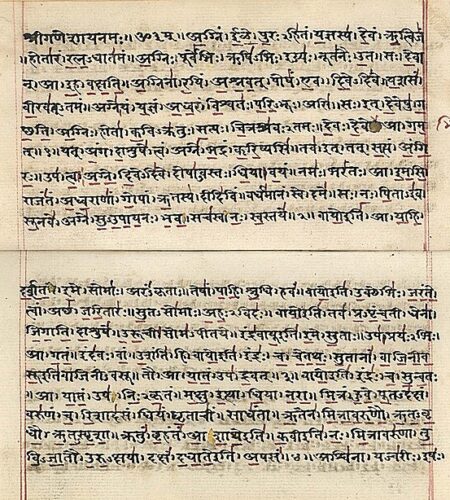 श्रीगणेशायनमः॥ॐ३म्॥ अग्निं। ईळे। पुरःऽहितं। यज्ञस्य। देवं। ऋत्विजं
। होतारं। रत्नऽधातमं। अग्निः। पूर्वेभिः। ऋषिऽभिः। ईड्यः। नूतनैः। उत। सः। देवा
न्। आ। इह। वक्षति। अग्निना। रयिं। अश्नवत्। पोषं। एव। दिवेऽदिवे। यशसं।
वीरवत्ऽतमं। अग्ने। यं। यज्ञं। अध्वरं। विश्वतः। परिऽभूः। असि। सः। इत्। देवेषु। ग
च्छति। अग्निः। होता। कविऽक्रतुः। सत्यः। चित्रश्रवःऽतमः। देवः। देवेभिः। आ। गम
त्॥१॥ यत्। अंग। दाशुषे। त्वं। अग्ने। भद्रं। करिष्यसि। तव। इत्। तत्। सत्यं। अंगि
रः। उप। त्वा। अग्ने। दिवेऽदिवे। दोषाऽवस्तः। धिया। वयं। नमः। भरंतः। आ। इमसि।
राजंतं। अध्वराणां। गोपां। ऋतस्य। दीदिविं। वर्धमानं। स्वे। दमे। सः। नः। पिताऽइव।
सूनवे। अग्ने। सुऽउपायनः। भव। सचस्व। नः। स्वस्तये॥२॥ वायो इति। आ। याहि।
दर्शत। इमे। सोमाः। अरंऽकृताः। तेषां। पाहि। श्रुधि। हवं। वायो इति। उक्थेभिः। जरंते।
त्वां। अच्छ। जरितारः। सुतऽसोमाः। अहःऽविदः। वायो इति। तव। प्रऽपृंचती। धेना।
जिगाति। दाशुषे। उरूची। सोमऽपीतये। इंद्रवायू इति। इमे। सुताः। उप। प्रयःऽभिः।
आ। गतं। इंदवः। वां। उशंति। हि। वायो इति। इंद्रः। च। चेतथः। सुतानां। वाजिनीव
सू इति वाजिनीऽवसू। तौ। आ। यातं। उप। द्रवत्॥३॥ वायो इति। इंद्रः। च। सुन्वतः
। आ। यातं। उप। निःऽकृतं। मक्षु। इत्था। धिया। नरा। मित्रं। हुवे। पूतऽदक्षं।
वरुणं। च। रिशादसं। धियं। घृताचीं। साधंता। ऋतेन। मित्रावरुणौ। ऋतऽवृ
धौ। ऋतऽस्पृशा। क्रतुं। बृहंतं। आशाथे इति। कवी इति। नः। मित्रावरुणा। तु
विऽजातौ। उरुऽक्षया। दक्षं। दधाते इति। अपसं॥४॥ अश्विना। यज्वरीः। इषः।